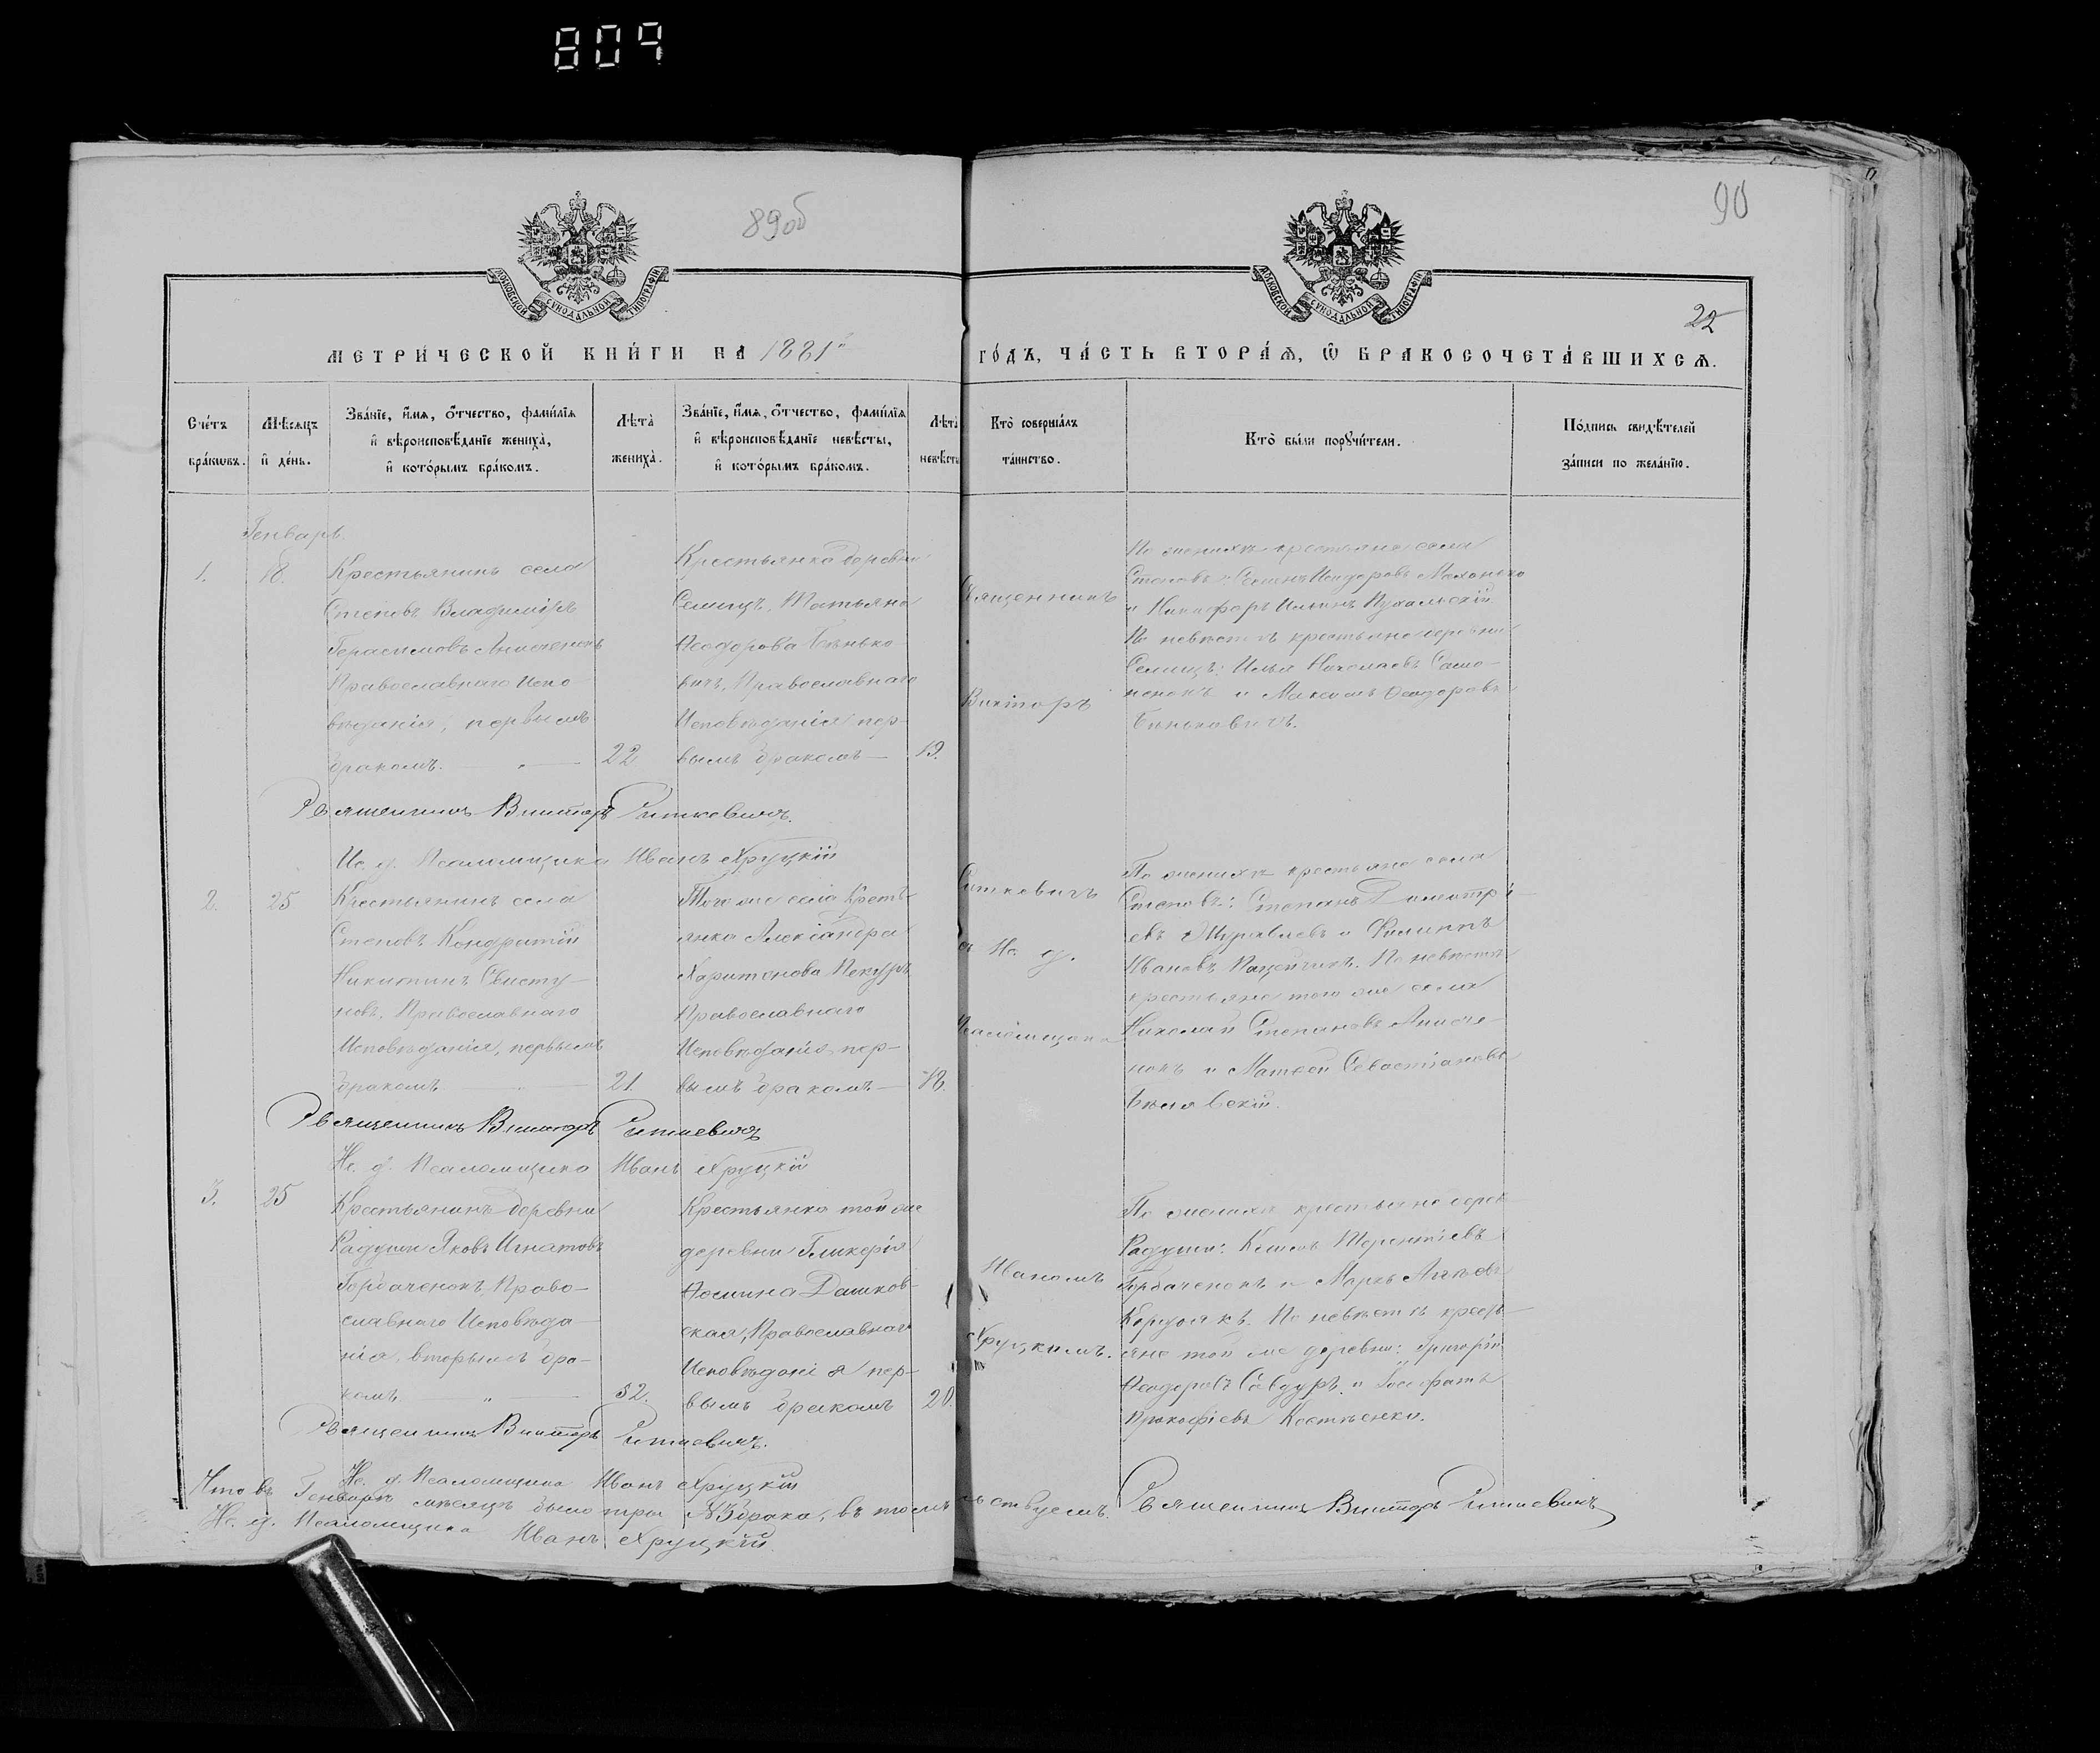 809
89об
90
МОСКОВСКОЙ СѴНОДАЛЬНОЙ ТИПОГРАФІИ
МОСКОВСКОЙ СѴНОДАЛЬНОЙ ТИПОГРАФІИ
22
МЕТРИ́ЧЕСКОЙ КНИ́ГИ НА 1881й ГО́ДЪ, ЧА́СТЬ ВТОРА́Ѧ, Ѽ БРАКОСОЧЕТА́ВШИХСѦ.
Сче́тъ
бра́кѡвъ.
Мѣ́сѧцъ
и҆ де́нь.
Зва́нїе, и҆́мѧ, ѻ҆́тчество, фами́лїѧ
и҆ вѣроисповѣ́данїе жениха̀,
и҆ кото́рымъ бра́комъ.
Лѣта̀
жениха̀.
Зва́нїе, и҆́мѧ, ѻ҆́тчество, фами́лїѧ
и҆ вѣроисповѣ́данїе невѣ́сты,
и҆ кото́рымъ бра́комъ.
Лѣта̀
невѣ́сты
Кто̀ соверша́лъ
та́инство.
Кто̀ бы́ли порꙋчи́тели.
По́дпись свидѣ́телей
за́писи по жела́нїю.
Генварь
1.
18.
Крестьянинъ села
Степовъ Владиміръ
Герасимовъ Анисченокъ
Православнаго Испо
вѣданія, первымъ
бракомъ.
22
Крестьянка деревни
Селищъ, Татьяна
Ѳеодорова Бѣнько
вичъ, Православнаго
Исповѣданія пер-
вымъ бракомъ
19.
Священникъ
Викторъ
По женихѣ крестьяне села
Степовъ: Исидоровъ Махонько
и Никифоръ Ильинъ
По невѣстѣ крестьяне деревни
Селищъ: Илья Николаевъ Само-
ненокъ и Максимъ Ѳеодоровъ
Бѣньковичъ.
Священникъ Викторъ Ситкевичъ.
Ис. д. Псаломщика Иванъ Хруцкій
2.
25
Крестьянинъ села
Степовъ Кондратій
Никитинъ Свисту-
новъ, Православнаго
Исповѣданія, первымъ
бракомъ.
21.
Того же села Кресть-
янка Александра
Харитонова Пекуръ
Православнаго
Исповѣданія пер-
вымъ бракомъ
18.
Ситкевичъ
съ Ис. д.
Псаломщика
По женихѣ крестьяне села
Степовъ: Степанъ Димитрі-
евъ Журавлевъ и Филиппъ
Ивановъ По невѣстѣ
крестьяне того же села
Николай Степановъ Анисче-
нокъ и Матѳей Севостіановъ
Бѣлявскій.
Священникъ Викторъ Ситкевичъ
Ис. д. Псаломщика Иванъ Хруцкій
3.
25
Крестьянинъ деревни
Радуши Яковъ Игнатовъ
Горбаченокъ, Право-
славнаго Исповѣда-
нія, вторымъ бра-
комъ
52.
Крестьянка той же
деревни Гликерія
Ѳомина Дашков-
ская, Православнаго
Исповѣданія пер-
вымъ бракомъ
20.
Иваномъ
Хруцкимъ.
По женихѣ крестьяне дерев
Радуши: Терентіевъ
Горбаченокъ и Марко
По невѣстѣ кресть-
яне той же деревни: Григорій
Ѳеодоровъ и Іосафатъ
Прокофіевъ
Священникъ Викторъ Ситкевичъ.
Ис. д. Псаломщика Иванъ Хруцкій
Что въ Генварѣ мѣсяцѣ было три №3 брака, въ томъ свидѣтельствуемъ. Священникъ Викторъ Ситкевичъ
Ис. д. Псаломщика Иванъ Хруцкій.